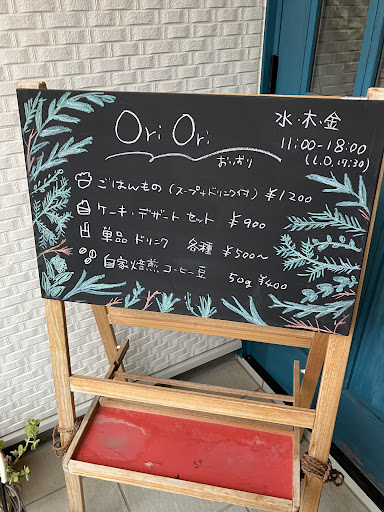 Ori Ori
おりおり
水・木・金
11:00-18:00
(L.O. 17:30)
ごはんもの (スープ+ドリンク付) ¥1200
ケーキ・デザート セット ¥900
単品 ドリンク 各種 ¥500〜
自家焙煎 コーヒー豆 50g ¥400